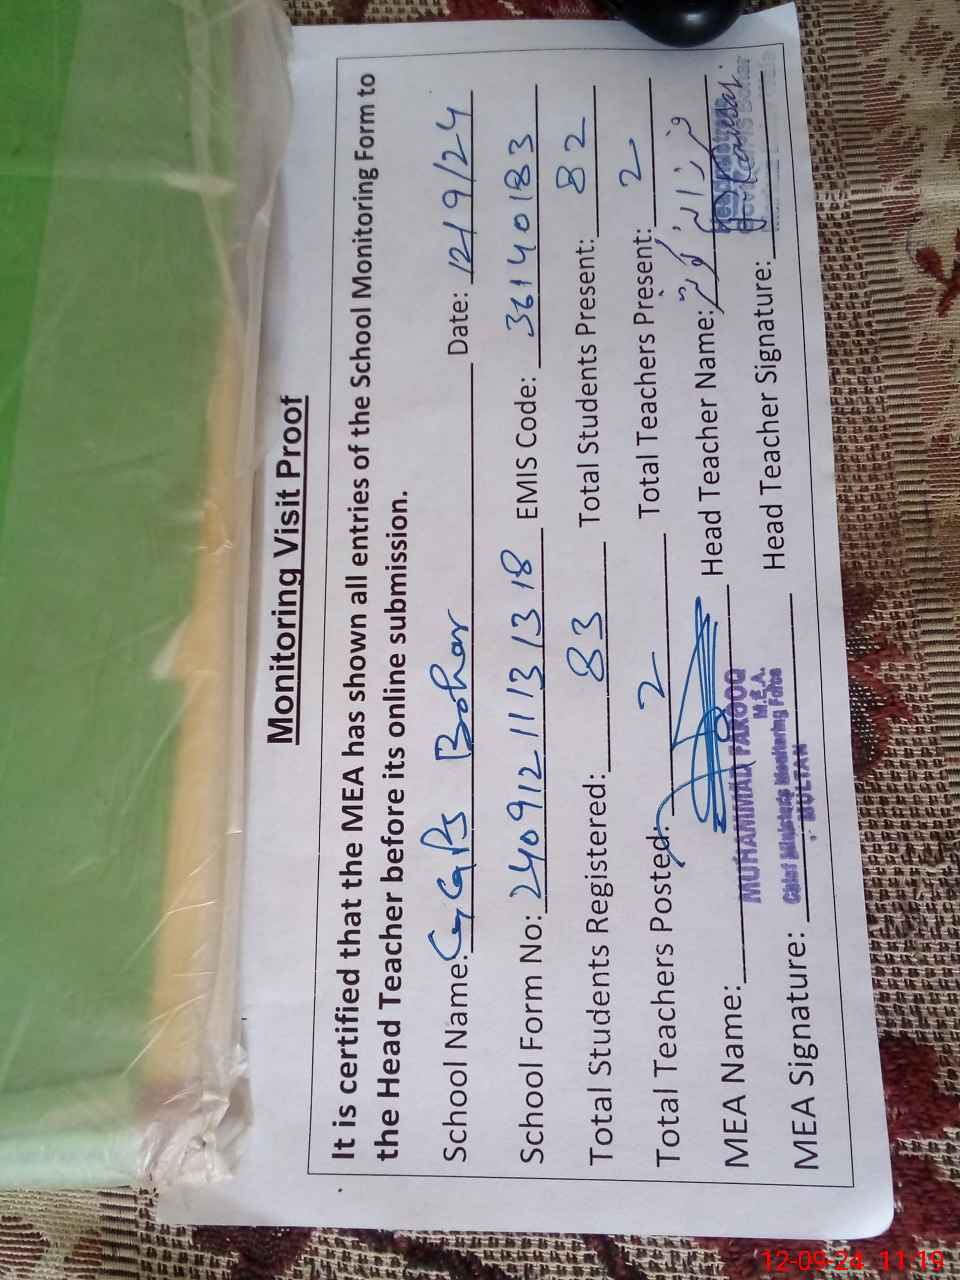 Monitoring Visit Proof
It is certified that the MEA has shown all entries of the School Monitoring Form to
the Head Teacher before its online submission.
School Name: GGPS Bohar Date: 12/9/24
School Form No: 24091211131318 EMIS Code: 36140183
Total Students Registered: 83 Total Students Present: 82
Total Teachers Posted: 2 Total Teachers Present: 2
MEA Name: Head Teacher Name:
MUHAMMAD FAROOQ
M.E.A.
Chief Ministers Monitoring Force
MULTAN
MEA Signature: Head Teacher Signature:
12-09-24 11:19